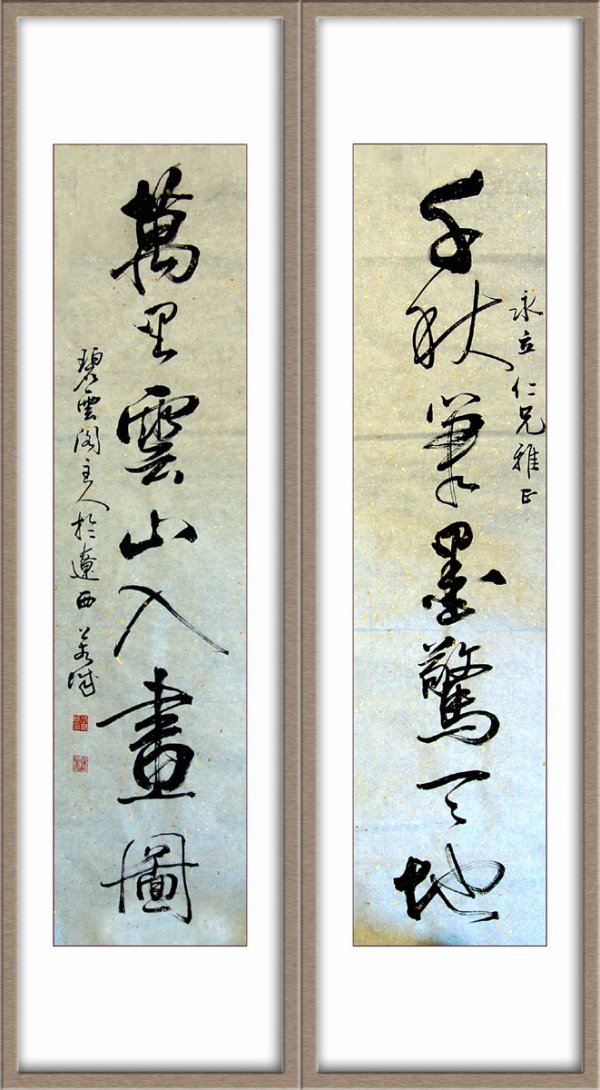 永立仁兄雅正
千秋筆墨驚天地
萬里雲山入畫圖
碧雲閣主人於遼西若城